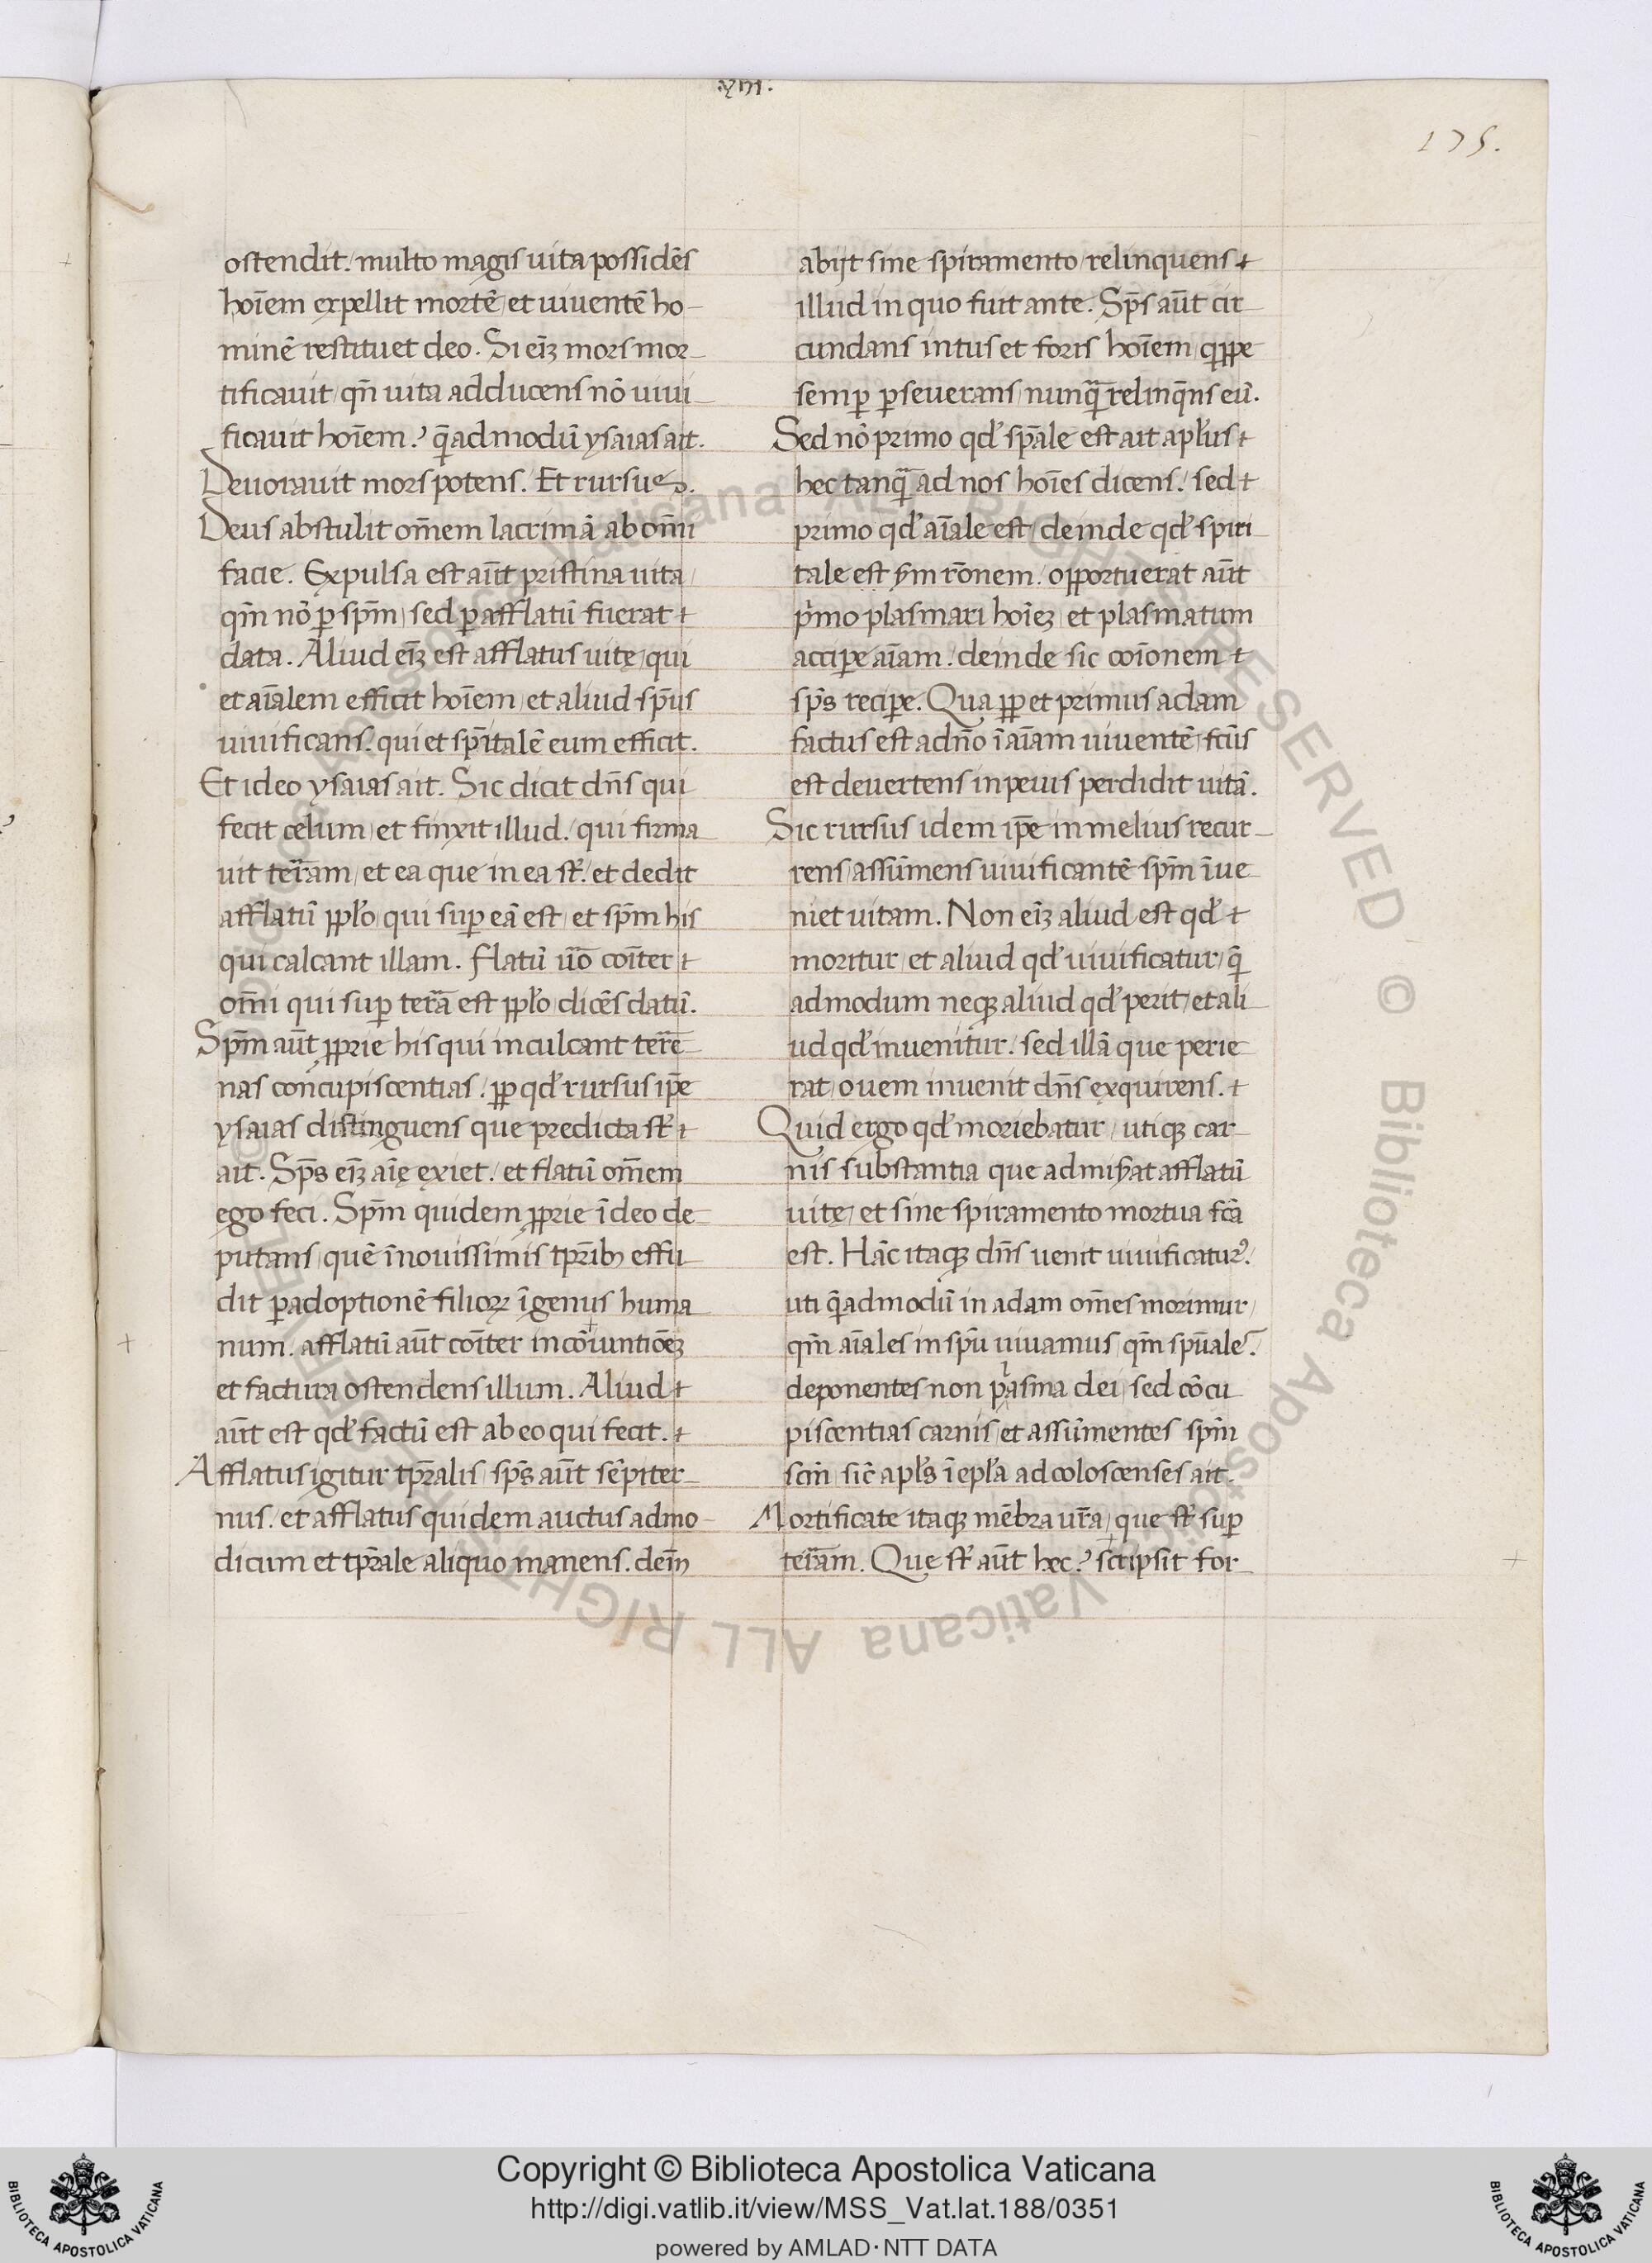 .xııı.
175.
ostendit. multo magis uita possidẽs
hoĩem expellit mortẽ, et uiuentẽ ho-
minẽ restituet deo. Si eĩꝫ mors mor-
tificauit, qñ uita adducens nõ uiui-
ficauit hoĩem? q̃admodũ ysaias ait.
Deuorauit mors potens. Et rursus.
Deus abstulit om̃em lacrimã ab om̃i
facie. Expulsa est aũt pristina uita,
qm̃ nõ ꝑ sp̃m, sed ꝑ afflatũ fuerat
data. Aliud eĩꝫ est afflatus uitę, qui
et aĩalem efficit hoĩem, et aliud sp̃us
uiuificans. qui et sp̃italẽ eum efficit.
Et ideo ysaias ait. Sic dicit dñs qui
fecit cęlum, et finxit illud. qui firma-
uit terãm, et ea que in ea st̃. et dedit
afflatũ ppl̃o, qui suꝑ eã est, et sp̃m his
qui calcant illam. Flatũ ũo coĩter
om̃i qui suꝑ terã est ppl̃o, dicẽs datũ.
Sp̃m aũt ꝓprie his qui inculcant terrẽ-
nas concupiscentias. ꝓp qđ rursus ip̃e
ysaias distinguens que predicta st̃
ait. Sp̃s eĩꝫ aĩę exiet. et flatũ om̃em
ego feci. Sp̃m quidem ꝓprie ĩ deo de-
putans, quẽ ĩ nouissimis tp̃ribꝫ effu-
dit ꝑ adoptionẽ filioꝝ ĩ genus huma-
num. afflatũ aũt coĩter in cõiuntiõeꝫ
et factura ostendens illum. Aliud
aũt est qđ factũ est ab eo qui fecit.
Afflatus igitur tp̃ralis, sp̃s aũt sẽpiter-
nus. et afflatus quidem auctus ad mo-
dicum et tp̃rale aliquo manens. deĩn
abijt sine spiramento relinquens
illud in quo fuit ante. Sp̃s aũt cir-
cundans intus et foris hoĩem, qⁱppe
semꝑ ꝑseuerans, nunq̃ relinq̃ns eũ.
Sed nõ primo qđ sp̃ale est ait apl̃us
hec tanq̃ ad nos hoĩes dicens. sed
primo qđ aĩale est, deinde qđ spiri-
tale est ẜm rõnem. opportuerat aũt
pⁱmo plasmari hoĩeꝫ, et plasmatum
acciꝑe aĩam. deinde sic coĩonem
sp̃s reciꝑe. Qua ꝓp et primus adam
factus est a dño ĩ aĩam uiuentẽ, fc̃us
est deuertens in peius perdidit uitã.
Sic rursus idem ip̃e in melius recur-
rens, assũmens uiuificantẽ sp̃m ĩue-
niet uitam. Non eĩꝫ aliud est qđ
moritur, et aliud qđ uiuificatur, q̃
admodum neqꝫ aliud qđ perit, et ali-
ud qđ inuenitur. sed illã que perie-
rat, ouem inuenit dñs exquirens.
Quid ergo qđ moriebatur, utiqꝫ car-
nis substantia que admiẜat afflatũ
uitę, et sine spiramento mortua fc̃a
est. Hãc itaqꝫ dñs uenit uiuificatur⁹.
uti q̃admodũ in adam om̃es morimur,
qm̃ aĩales in sp̃u uiuamus, qm̃ sp̃uales.
deponentes non plasma dei, sed cõcu-
piscentias carnis, et assũmentes sp̃m
scm̃, sic̃ apl̃s ĩ epl̃a ad coloscenses ait.
Mortificate itaqꝫ mẽbra ur̃a, que st̃ suꝑ
terãm. Que st̃ aũt hęc? scripsit for-
Copyright © Biblioteca Apostolica Vaticana
http://digi.vatlib.it/view/MSS_Vat.lat.188/0351
powered by AMLAD·NTT DATA